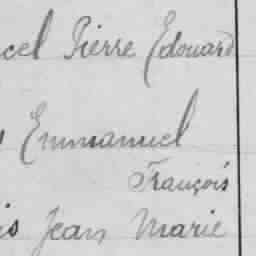 cel Pierre Edouard
Emmanuel
François
is Jean Marie